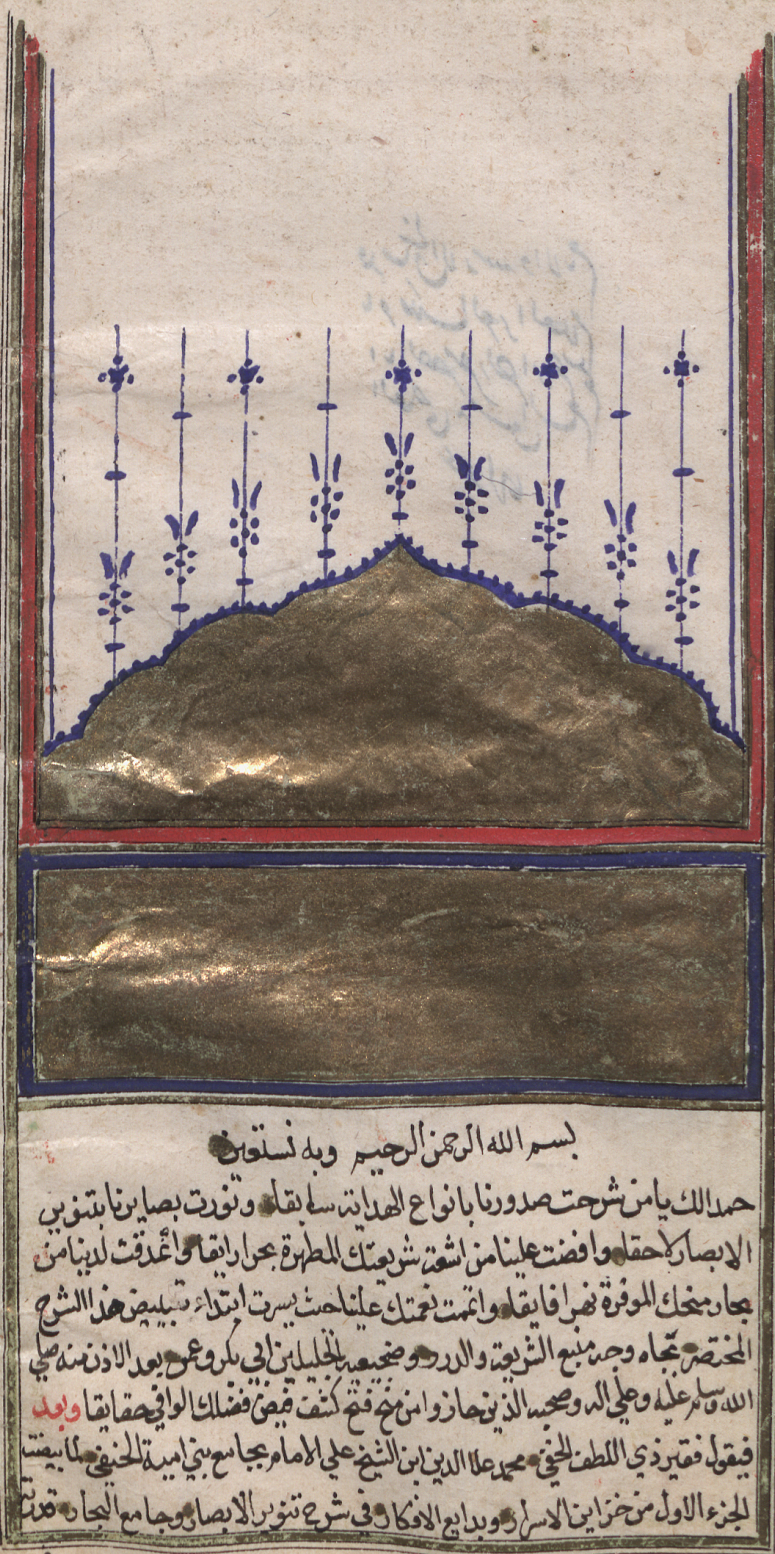 بسم الله الرحمن الرحيم وبه نستعين
حمدا لك يا من شرحت صدورنا بانواع الهداية سابقا ونورت بصايرنا بتنوير
الابصار لاحقا وافضت علينا من اشعة شريعتك المطهرة بحرا رايقا واغدقت لدينا من
بحار منحك الموفرة نهرا فايقا واتممت نعمتك علينا حيث يسرت ابتداء تبييض هذا الشرح
المختصر تجاه وجه منبع الشريعة والدرر وضجيعيه الجليلين ابي بكر وعمر بعد الاذن منه صلي
الله وسلم عليه وعلي اله وصحبه الذين حازوا من منح فتح كشف فيض فضلك الوافي حقايقا وبعد
فيقول فقير ذي اللطف الخفي محمد علا الدين ابن الشيخ علي الامام بجامع بني امية الحنفي لما بيضت
الجزء الاول من خزاين الاسرار وبدايع الافكار في شرح تنوير الابصار وجامع البحار قدرته